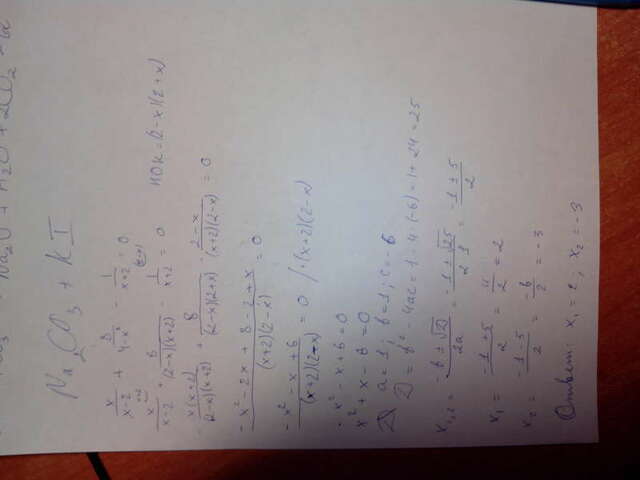 Na₂O + H₂O + 2CO₂
Na₂CO₃ + KI
x/(x-2) + 8/(4-x²) - 1/(x+2) = 0
x/(x-2) + 8/((2-x)(x+2)) - 1/(x+2) = 0 НОК=(2-x)(2+x)
-x(x+2)/((2-x)(x+2)) + 8/((2-x)(2+x)) - (2-x)/((x+2)(2-x)) = 0
(-x²-2x+8-2+x)/((x+2)(2-x)) = 0
(-x²-x+6)/((x+2)(2-x)) = 0 /·(x+2)(2-x)
-x²-x+6=0
x²+x-6=0
D a=1; b=1; c=-6
D=b²-4ac=1-4·(-6)=1+24=25
x₁,₂ = (-b±√D)/2a = (-1±√25)/(2·1) = (-1±5)/2
x₁ = (-1+5)/2 = 4/2 = 2
x₂ = (-1-5)/2 = -6/2 = -3
Ответ: x₁=2; x₂=-3